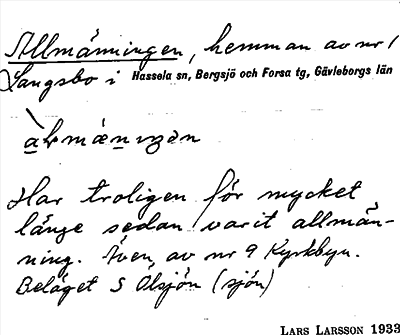 Allmänningen, hemman av nr 1
Långsbo i Hassela sn, Bergsjö och Forsa tg, Gävleborgs län
Har troligen för mycket
länge sedan varit allmän-
ning. Även av nr 9 Kyrkbyn.
Beläget S Ölsjön (sjön)
LARS LARSSON 1933